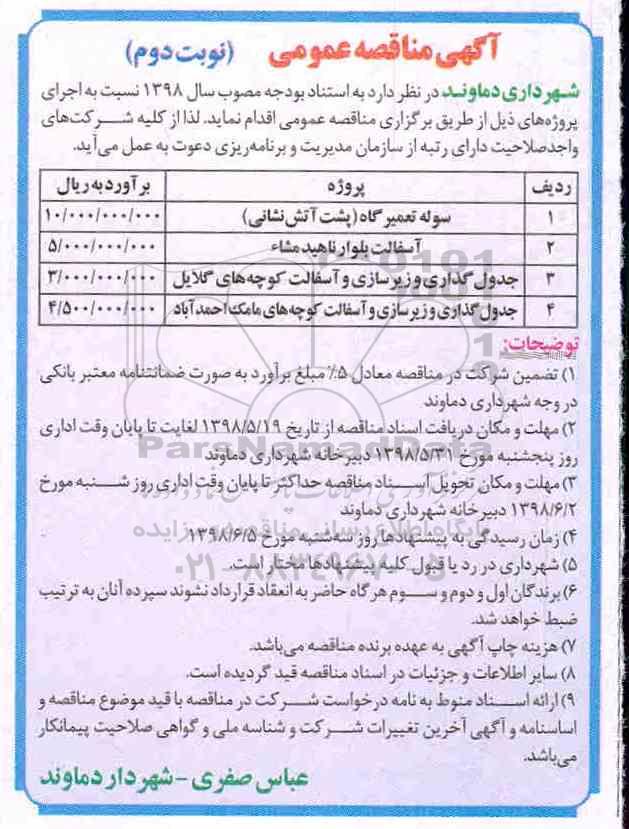 آگهی مناقصه عمومی (نوبت دوم)
شهرداری دماوند در نظر دارد به استناد بودجه مصوب سال ۱۳۹۸ نسبت به اجرای
پروژه‌های ذیل از طریق برگزاری مناقصه عمومی اقدام نماید. لذا از کلیه شرکت‌های
واجدصلاحیت دارای رتبه از سازمان مدیریت و برنامه‌ریزی دعوت به عمل می‌آید.
ردیف پروژه برآورد به ریال
۱ سوله تعمیرگاه (پشت آتش‌نشانی) ۱۰/۰۰۰/۰۰۰/۰۰۰
۲ آسفالت بلوار ناهید مشاء ۵/۰۰۰/۰۰۰/۰۰۰
۳ جدول گذاری و زیرسازی و آسفالت کوچه‌های گلایل ۳/۰۰۰/۰۰۰/۰۰۰
۴ جدول گذاری و زیرسازی و آسفالت کوچه‌های مامک احمدآباد ۴/۵۰۰/۰۰۰/۰۰۰
توضیحات:
۱) تضمین شرکت در مناقصه معادل ۵٪ مبلغ برآورد به صورت ضمانتنامه معتبر بانکی
در وجه شهرداری دماوند
۲) مهلت و مکان دریافت اسناد مناقصه از تاریخ ۱۳۹۸/۵/۱۹ لغایت تا پایان وقت اداری
روز پنجشنبه مورخ ۱۳۹۸/۵/۳۱ دبیرخانه شهرداری دماوند
۳) مهلت و مکان تحویل اسناد مناقصه حداکثر تا پایان وقت اداری روز شنبه مورخ
۱۳۹۸/۶/۲ دبیرخانه شهرداری دماوند
۴) زمان رسیدگی به پیشنهادها روز سه‌شنبه مورخ ۱۳۹۸/۶/۵
۵) شهرداری در رد یا قبول کلیه پیشنهادها مختار است.
۶) برندگان اول و دوم و سوم هرگاه حاضر به انعقاد قرارداد نشوند سپرده آنان به ترتیب
ضبط خواهد شد.
۷) هزینه چاپ آگهی به عهده برنده مناقصه می‌باشد.
۸) سایر اطلاعات و جزئیات در اسناد مناقصه قید گردیده است.
۹) ارائه اسناد منوط به نامه درخواست شرکت در مناقصه با قید موضوع مناقصه و
اساسنامه و آگهی آخرین تغییرات شرکت و شناسه ملی و گواهی صلاحیت پیمانکار
می‌باشد.
عباس صفری - شهردار دماوند
ParsNamadData
پایگاه اطلاع رسانی مناقصه و مزایده
۰۲۱-۸۸۳۴۹۶۷۰-۵